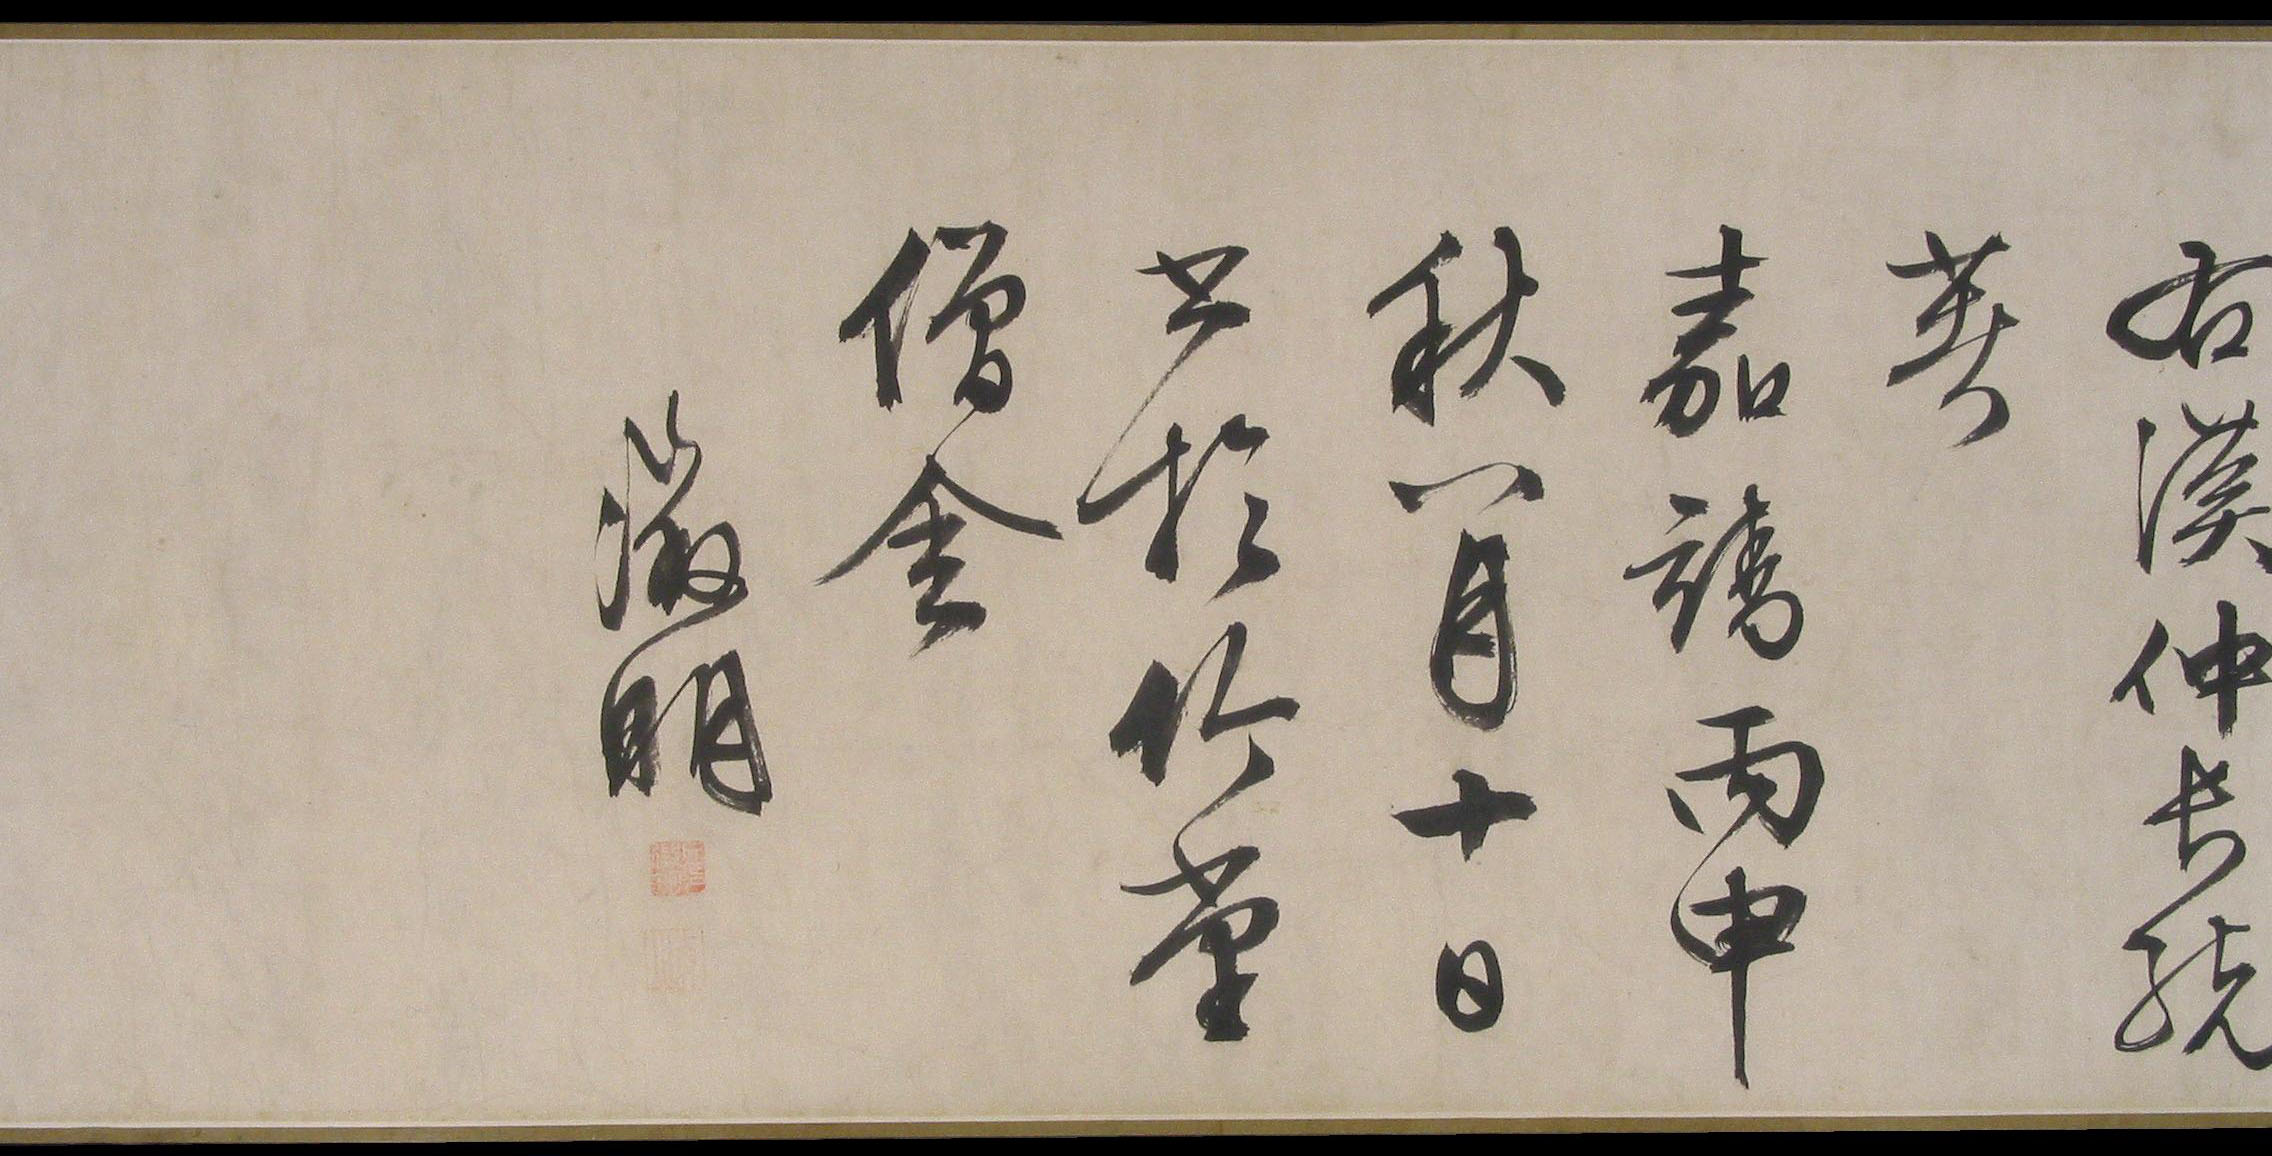 右漢仲長統
嘉靖丙申
秋八月十日
書於竹堂
僧舍
徵明